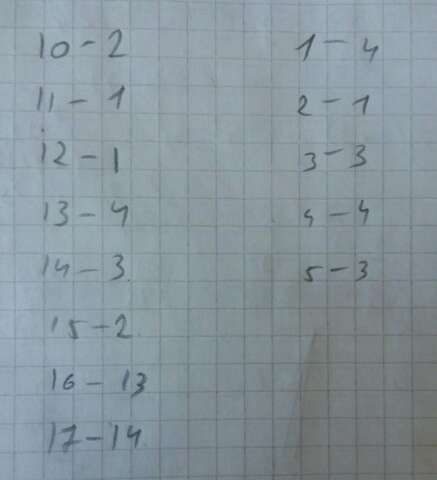 10 - 2
11 - 1
12 - 1
13 - 4
14 - 3
15 - 2
16 - 13
17 - 14
1 - 4
2 - 1
3 - 3
4 - 4
5 - 3